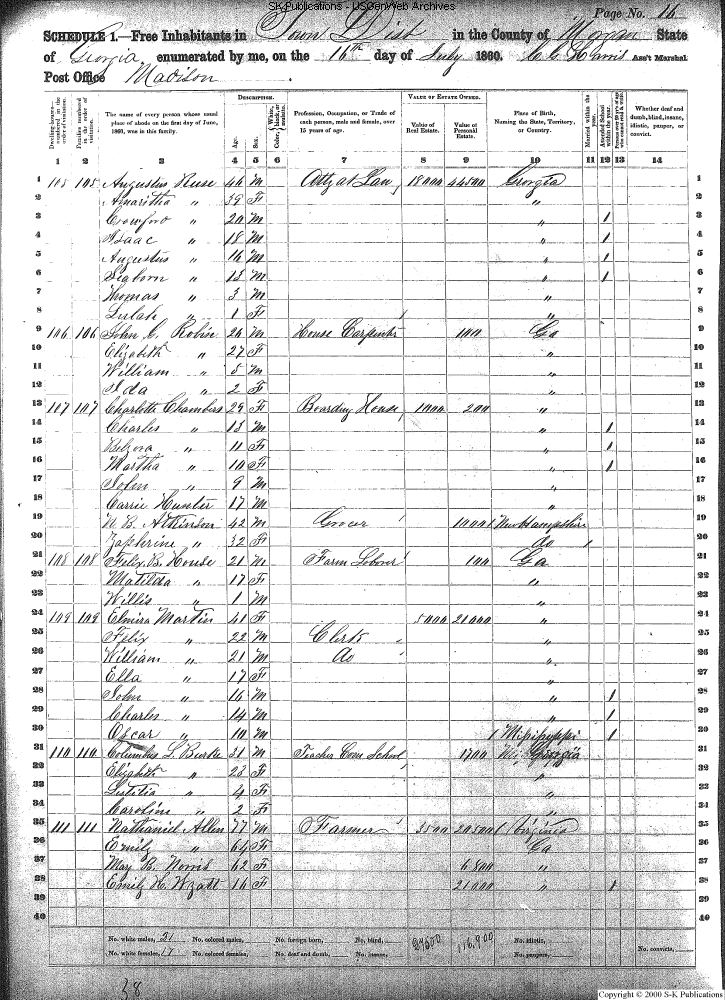 SK Publications - USGenWeb Archives
Page No. 16
SCHEDULE 1.—Free Inhabitants in Town Dist in the County of Morgan State
of Georgia enumerated by me, on the 16th day of July 1860. C. C. Harris Ass't Marshal
Post Office Madison
Dwelling-houses—numbered in the order of visitation. Families numbered in the order of visitation. The name of every person whose usual place of abode on the first day of June, 1860, was in this family. DESCRIPTION. Age. Sex. Color, White, black, or mulatto. Profession, Occupation, or Trade of each person, male and female, over 15 years of age. VALUE OF ESTATE OWNED. Value of Real Estate. Value of Personal Estate. Place of Birth, Naming the State, Territory, or Country. Married within the year. Attended School within the year. Persons over 20 y'rs of age who cannot read & write. Whether deaf and dumb, blind, insane, idiotic, pauper, or convict.
1 2 3 4 5 6 7 8 9 10 11 12 13 14
1 105 105 Augustus Reese 46 M Atty at Law 18000 44500 Georgia 1
2 Amaritha " 39 F " 2
3 Crawford " 20 M " 1 3
4 Isaac " 18 M " 1 4
5 Augustus " 16 M " 1 5
6 Seaborn " 13 M " 1 6
7 Thomas " 3 M " 7
8 Lulah " 1 F " 8
9 106 106 John C. Robin 26 M House Carpenter 100 Ga 9
10 Elizabeth " 27 F " 10
11 William " 5 M " 11
12 Ida " 2 F " 12
13 107 107 Charlotte Chambers 29 F Boarding House 1000 200 " 13
14 Charles " 13 M " 1 14
15 " 11 F " 1 15
16 Martha " 10 F " 1 16
17 John " 9 M " 17
18 Carrie Hunter 17 M " 18
19 N. B. Atkinson 42 M Grocer 1000 New Hampshire 19
20 Zepherine " 32 F do 20
21 108 108 Felix B. House 21 M Farm Laborer 100 Ga 21
22 Matilda " 17 F " 22
23 Willis " 1 M " 23
24 109 109 Elmira Martin 41 F 5000 21000 " 24
25 Felix " 22 M Clerk " 25
26 William " 21 M do " 26
27 Ella " 17 F " 27
28 John " 16 M " 1 28
29 Charles " 14 M " 1 29
30 Oscar " 10 M Missippi 1 30
31 110 110 Columbus L. Burke 31 M Teacher Com School 1700 Georgia 31
32 Elizabeth " 23 F " 32
33 Lutitia " 4 F " 33
34 Caroline " 2 F " 34
35 111 111 Nathaniel Allen 77 M Farmer 3500 20500 Virginia 35
36 Emily " 64 F Ga 36
37 Mary B. Norris 62 F 6800 " 37
38 Emily H. Wyatt 16 F 21000 " 1 38
39 39
40 40
No. white males, 21 No. colored males, No. foreign born, No. blind, 116,900 No. idiotic, No. convicts,
No. white females, 17 No. colored females, No. deaf and dumb, No. insane, No. paupers,
28
Copyright © 2000 S-K Publications